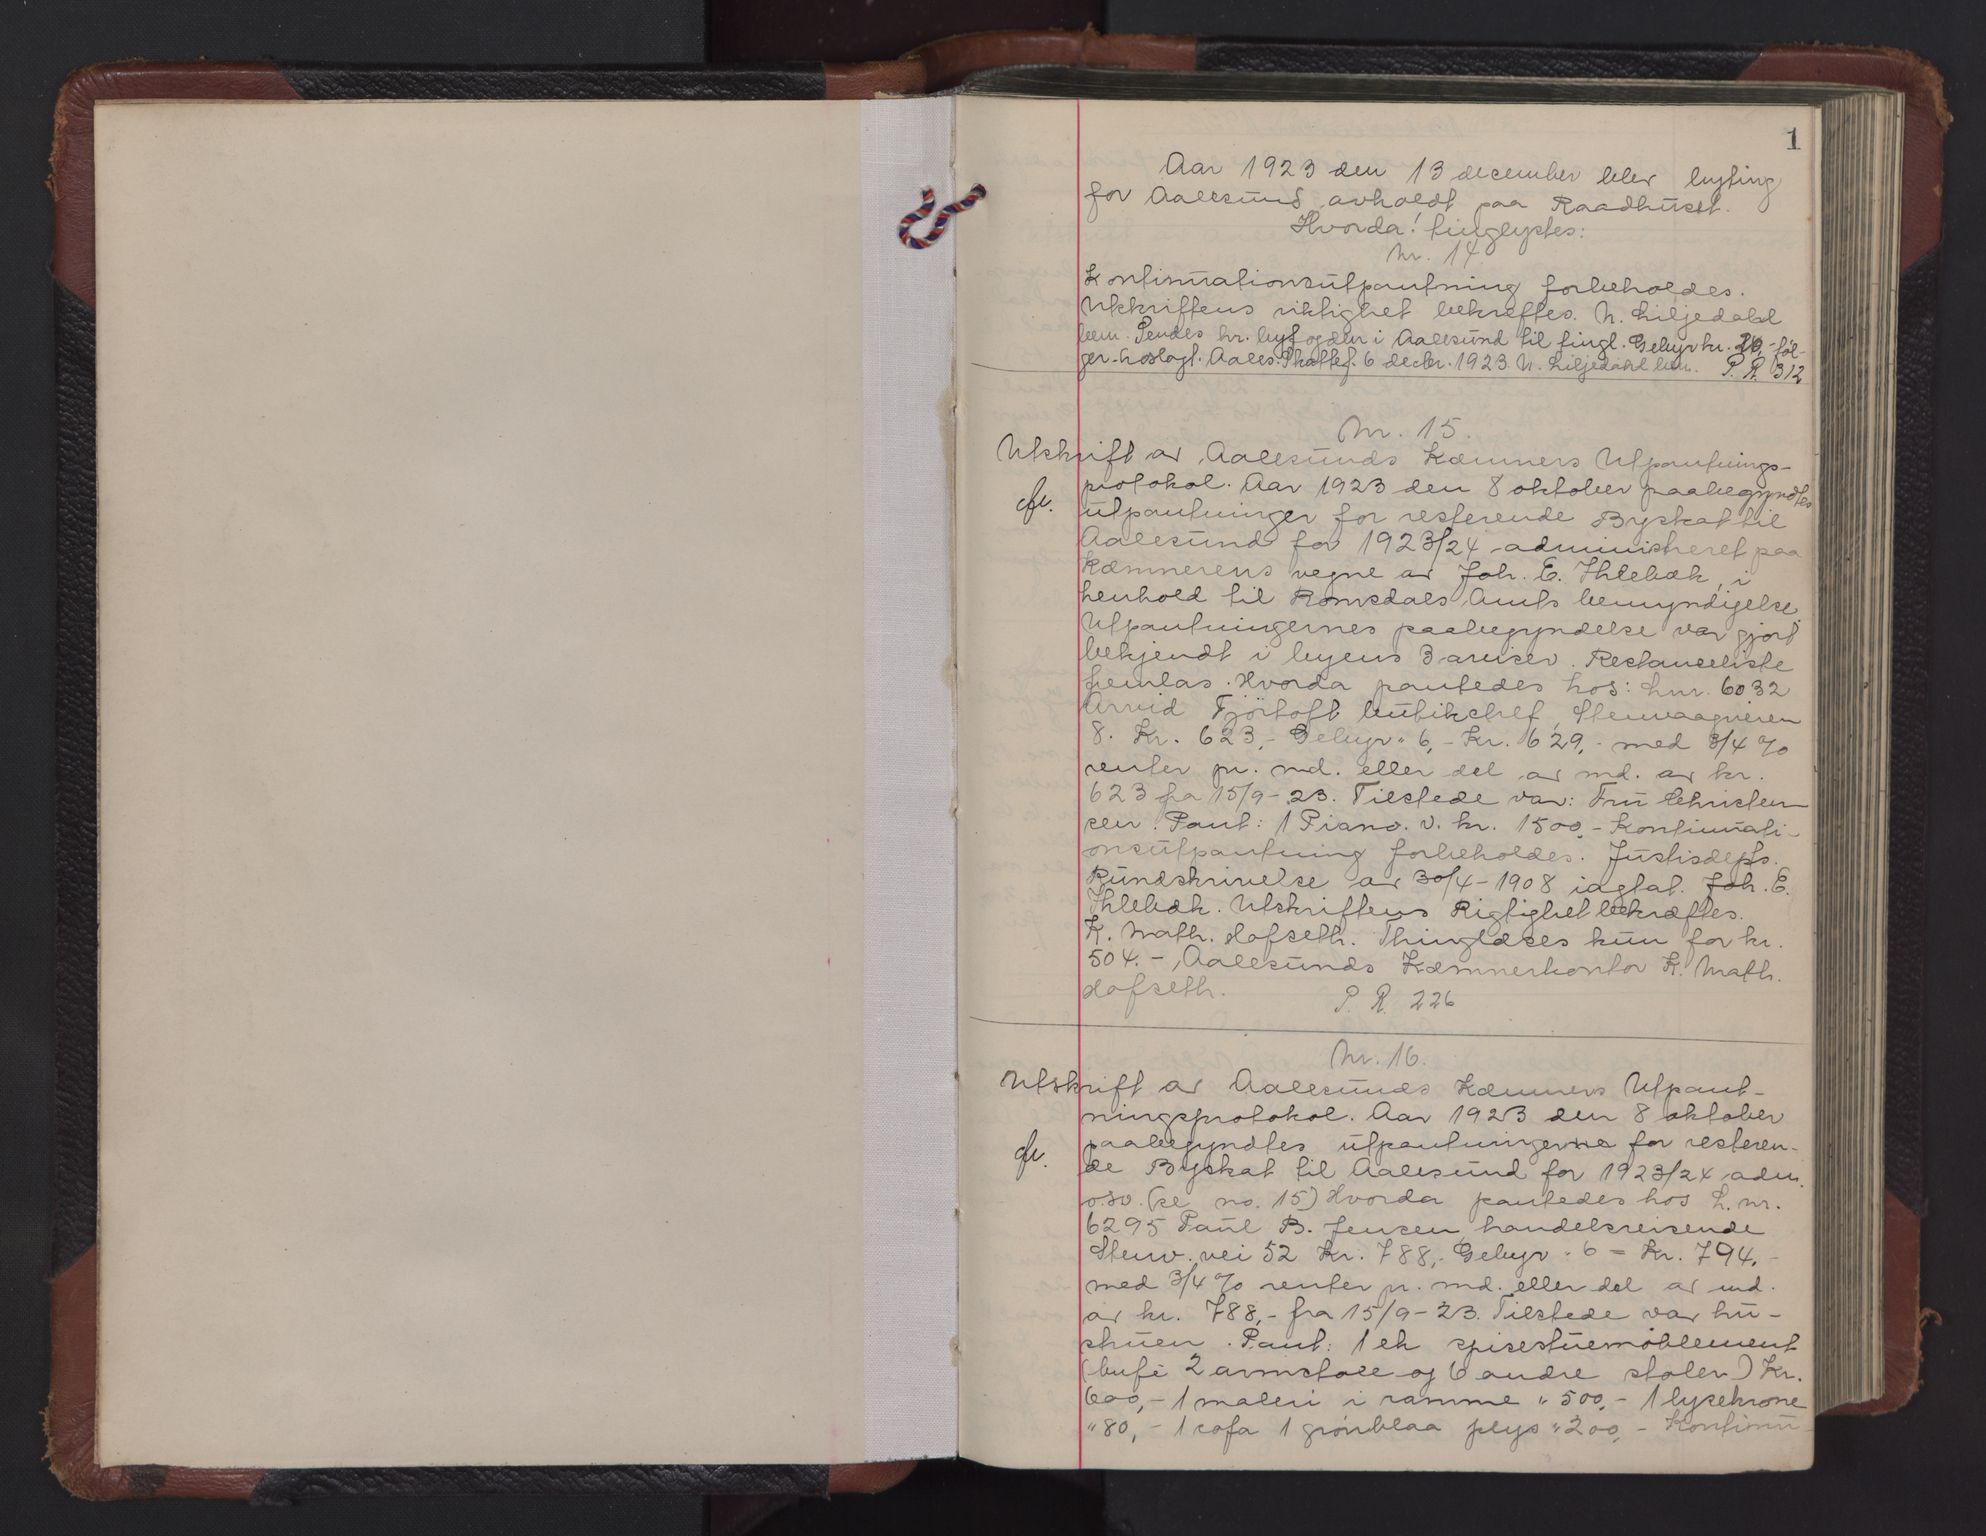 1
Aar 1923 den 13 december blev byting
for Aalesund avholdt paa Raadhuset.
Hvorda! tinglystes:
Nr. 14
Kontinuationsutpantning forbeholdes.
Utskriftens riktighet bekræftes. N. Liljedahl
bem. Sendes hr. byfogden i Aalesund til tingl. Gebyr kr. 20,- føl-
ger. hoslagt. Aales. Skattef. 6 decbr. 1923 N. Liljedahl bem. P. R. 312
Nr. 15.
Utskrift av Aalesunds Kæmners Utpantnings-
protokol. Aar 1923 den 8 oktober paabegyndtes
utpantninger for resterende Byskat til
Aalesund for 1923/24 administreret paa
Kæmnerens vegne av Joh. E. Ihlebæk, i
henhold til Romsdals Amts bemyndigelse.
Utpantningernes paabegyndelse var gjort
bekjendt i byens 3 aviser. Restanceliste
fremlas. Hvorda pantedes hos: Lnr. 6032
Arvid Fjörtoft butikchef, Stenvaagveien
8. Kr. 623,- Gebyr " 6,- Kr. 629,- med 3/4 %
renter pr. md. eller del av md. av kr.
623 fra 15/9-23. Tilstede var: Fru Christen-
sen. Pant: 1 Piano. v. kr. 1500,- Kontinuati-
onsutpantning forbeholdes. Justisdepts.
Rundskrivelse av 30/4-1908 iagtat. Joh. E.
Ihlebæk. Utskriftens Rigtighet bekræftes.
K. Math. Hofseth. Thinglæses kun for kr.
504.-, Aalesunds Kæmnerkontor K. Math.
Hofseth.
P. R. 226
Nr. 16.
Utskrift av Aalesunds Kæmners Utpant-
ningsprotokol. Aar 1923 den 8 oktober
paabegyndtes utpantningerne for resteren-
de Byskat til Aalesund for 1923/24 adm.
o.s.v. (se no. 15) Hvorda pantedes hos L. nr.
6295 Paul B. Jensen, handelsreisende
Stenv. vei 52 Kr. 788,- Gebyr " 6 = Kr. 794,-
med 3/4 % renter pr. md. eller del av md.
av kr. 788,- fra 15/9-23. Tilstede var hu-
struen. Pant: 1 ek spisestuemöblement
(bufé 2 armstole og 6 andre stoler) Kr.
600,- 1 maleri i ramme " 500,- 1 lysekrone
" 80,- 1 sofa 1 grönblaa plys " 200,- Kontinu-